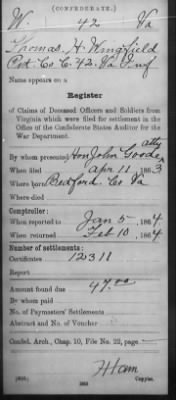 (CONFEDERATE.)
W. 42 Va
Thomas H. Wingfield
Pvt. Co. C. 42. Va Inf
Name appears on a
Register
of Claims of Deceased Officers and Soldiers from
Virginia which were filed for settlement in the
Office of the Confederate States Auditor for the
War Department.
By whom presented Hon John Goode atty
When filed Apr 11 1863
Where born Bedford Co Va
Where died
Comptroller:
When reported to Jan 5 1864
When returned Feb 10, 1864
Number of settlements:
Certificates 12311
Report
Amount found due 47.00
By whom paid
No. of Paymasters' Settlements
Abstract and No. of Voucher
Confed. Arch., Chap. 10, File No. 22, page
Ham
Copyist.